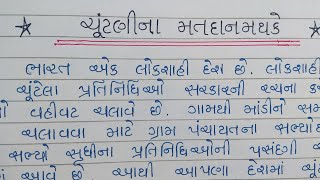 ચૂંટણીના મતદાનમથકે
ભારત એક લોકશાહી દેશ છે. લોકશાહી
ચૂંટેલા પ્રતિનિધિઓ સરકારની રચના કર
વહીવટ ચલાવે છે. ગામથી માંડીને સમ
ચલાવવા માટે ગ્રામ પંચાયતના સભ્યો
સભ્યો સુધીના પ્રતિનિધિઓની પસંદગી
આવે છે. આથી આપણા દેશમાં ચૂં